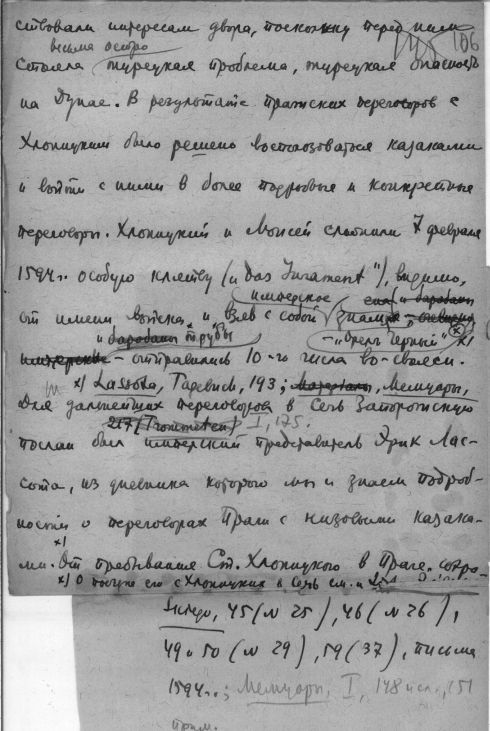 106
ствовали интересам двора, поскольку перед ним
весьма остро
стояла турецкая проблема, турецкая опасность
на Дунае. В результате пражских переговоров с
Хлопицким было решено воспользоваться казаками
и войти с ними в более подробные и конкретные
переговоры. Хлопицкий и Моисей сложили 7 февраля
1594 г. особую клятву („das Jurament"), видимо,
от имени войска, и взяв с собой имперское знамя
и трубы — „Орел Черный" x)
— отправились 10-го числа во-свояси.
x) Lassota, Tagebuch, 193; Мемуары,
Для дальнейших переговоров в Сечь Запорожскую
217 (Trommeten) I, 175.
послан был имперский представитель Эрик Лас-
сота, из дневника которого мы и знаем подроб-
ности о переговорах Праги с низовыми казака-
ми. x) От пребывания Ст. Хлопицкого в Праге сохра-
x) О поездке его с Хлопицким в Сечь см. и
45 (N 25), 46 (N 26),
49 и 50 (N 29), 59 (37), письма
1594 г.; Мемуары, I, 148 и сл., 151
прим.